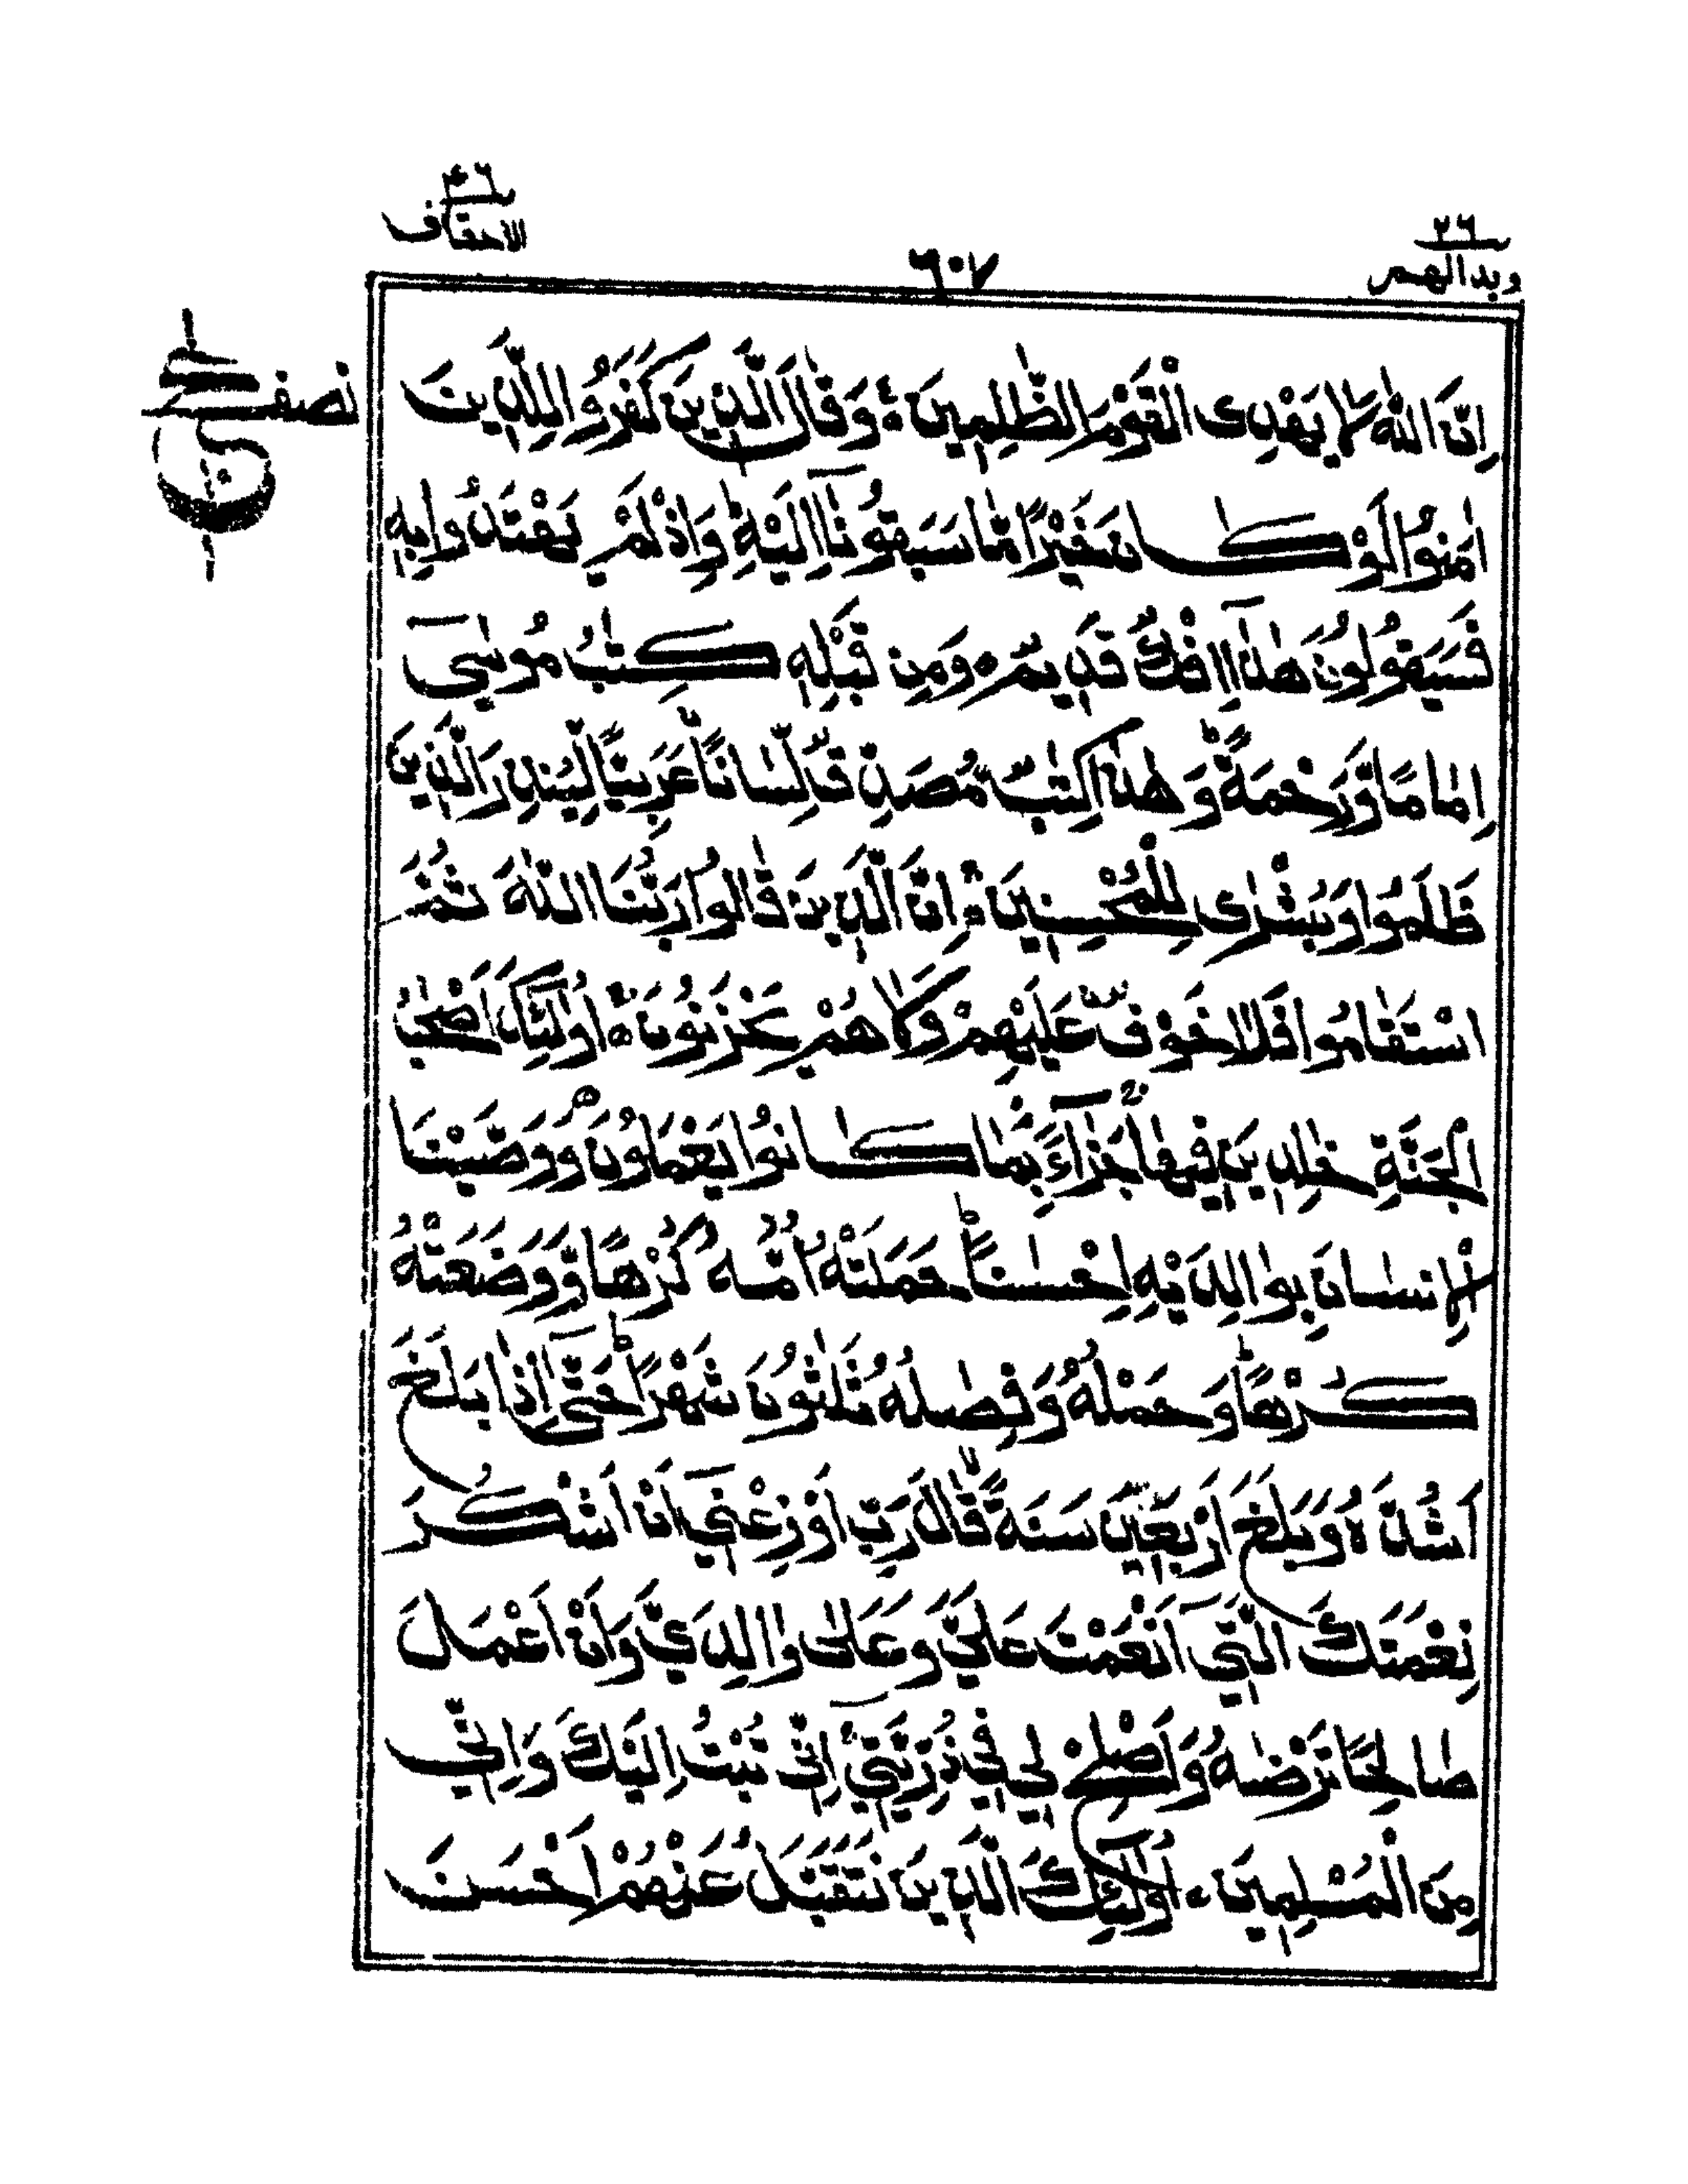 ٢٦
وبدالهم
٦٠٧
٤٦
الاحقاف
نصف
اِنَّ اللّٰهَ لَا يَهْدِى الْقَوْمَ الظّٰلِمِيْنَ ۰ وَقَالَ الَّذِيْنَ كَفَرُوْا لِلَّذِيْنَ
اٰمَنُوْا لَوْ كَانَ خَيْرًا مَّا سَبَقُوْنَآ اِلَيْهِ ؕ وَاِذْ لَمْ يَهْتَدُوْا بِهٖ
فَسَيَقُوْلُوْنَ هٰذَآ اِفْكٌ قَدِيْمٌ ۰ وَمِنْ قَبْلِهٖ كِتٰبُ مُوْسٰٓى
اِمَامًا وَّرَحْمَةً ؕ وَهٰذَا كِتٰبٌ مُّصَدِّقٌ لِّسَانًا عَرَبِيًّا لِّيُنْذِرَ الَّذِيْنَ
ظَلَمُوْا وَبُشْرٰى لِلْمُحْسِنِيْنَ ۰ اِنَّ الَّذِيْنَ قَالُوْا رَبُّنَا اللّٰهُ ثُمَّ
اسْتَقَامُوْا فَلَا خَوْفٌ عَلَيْهِمْ وَلَا هُمْ يَحْزَنُوْنَ ۰ اُولٰٓئِكَ اَصْحٰبُ
الْجَنَّةِ خٰلِدِيْنَ فِيْهَا جَزَآءً بِمَا كَانُوْا يَعْمَلُوْنَ ۰ وَوَصَّيْنَا
الْاِنْسَانَ بِوَالِدَيْهِ اِحْسٰنًا ؕ حَمَلَتْهُ اُمُّهٗ كُرْهًا وَّوَضَعَتْهُ
كُرْهًا ؕ وَحَمْلُهٗ وَفِصٰلُهٗ ثَلٰثُوْنَ شَهْرًا ؕ حَتّٰٓى اِذَا بَلَغَ
اَشُدَّهٗ وَبَلَغَ اَرْبَعِيْنَ سَنَةً ۙ قَالَ رَبِّ اَوْزِعْنِيْٓ اَنْ اَشْكُرَ
نِعْمَتَكَ الَّتِيْٓ اَنْعَمْتَ عَلَيَّ وَعَلٰى وَالِدَيَّ وَاَنْ اَعْمَلَ
صَالِحًا تَرْضٰىهُ وَاَصْلِحْ لِيْ فِيْ ذُرِّيَّتِيْ ۚ اِنِّيْ تُبْتُ اِلَيْكَ وَاِنِّيْ
مِنَ الْمُسْلِمِيْنَ ۰ اُولٰٓئِكَ الَّذِيْنَ نَتَقَبَّلُ عَنْهُمْ اَحْسَنَ